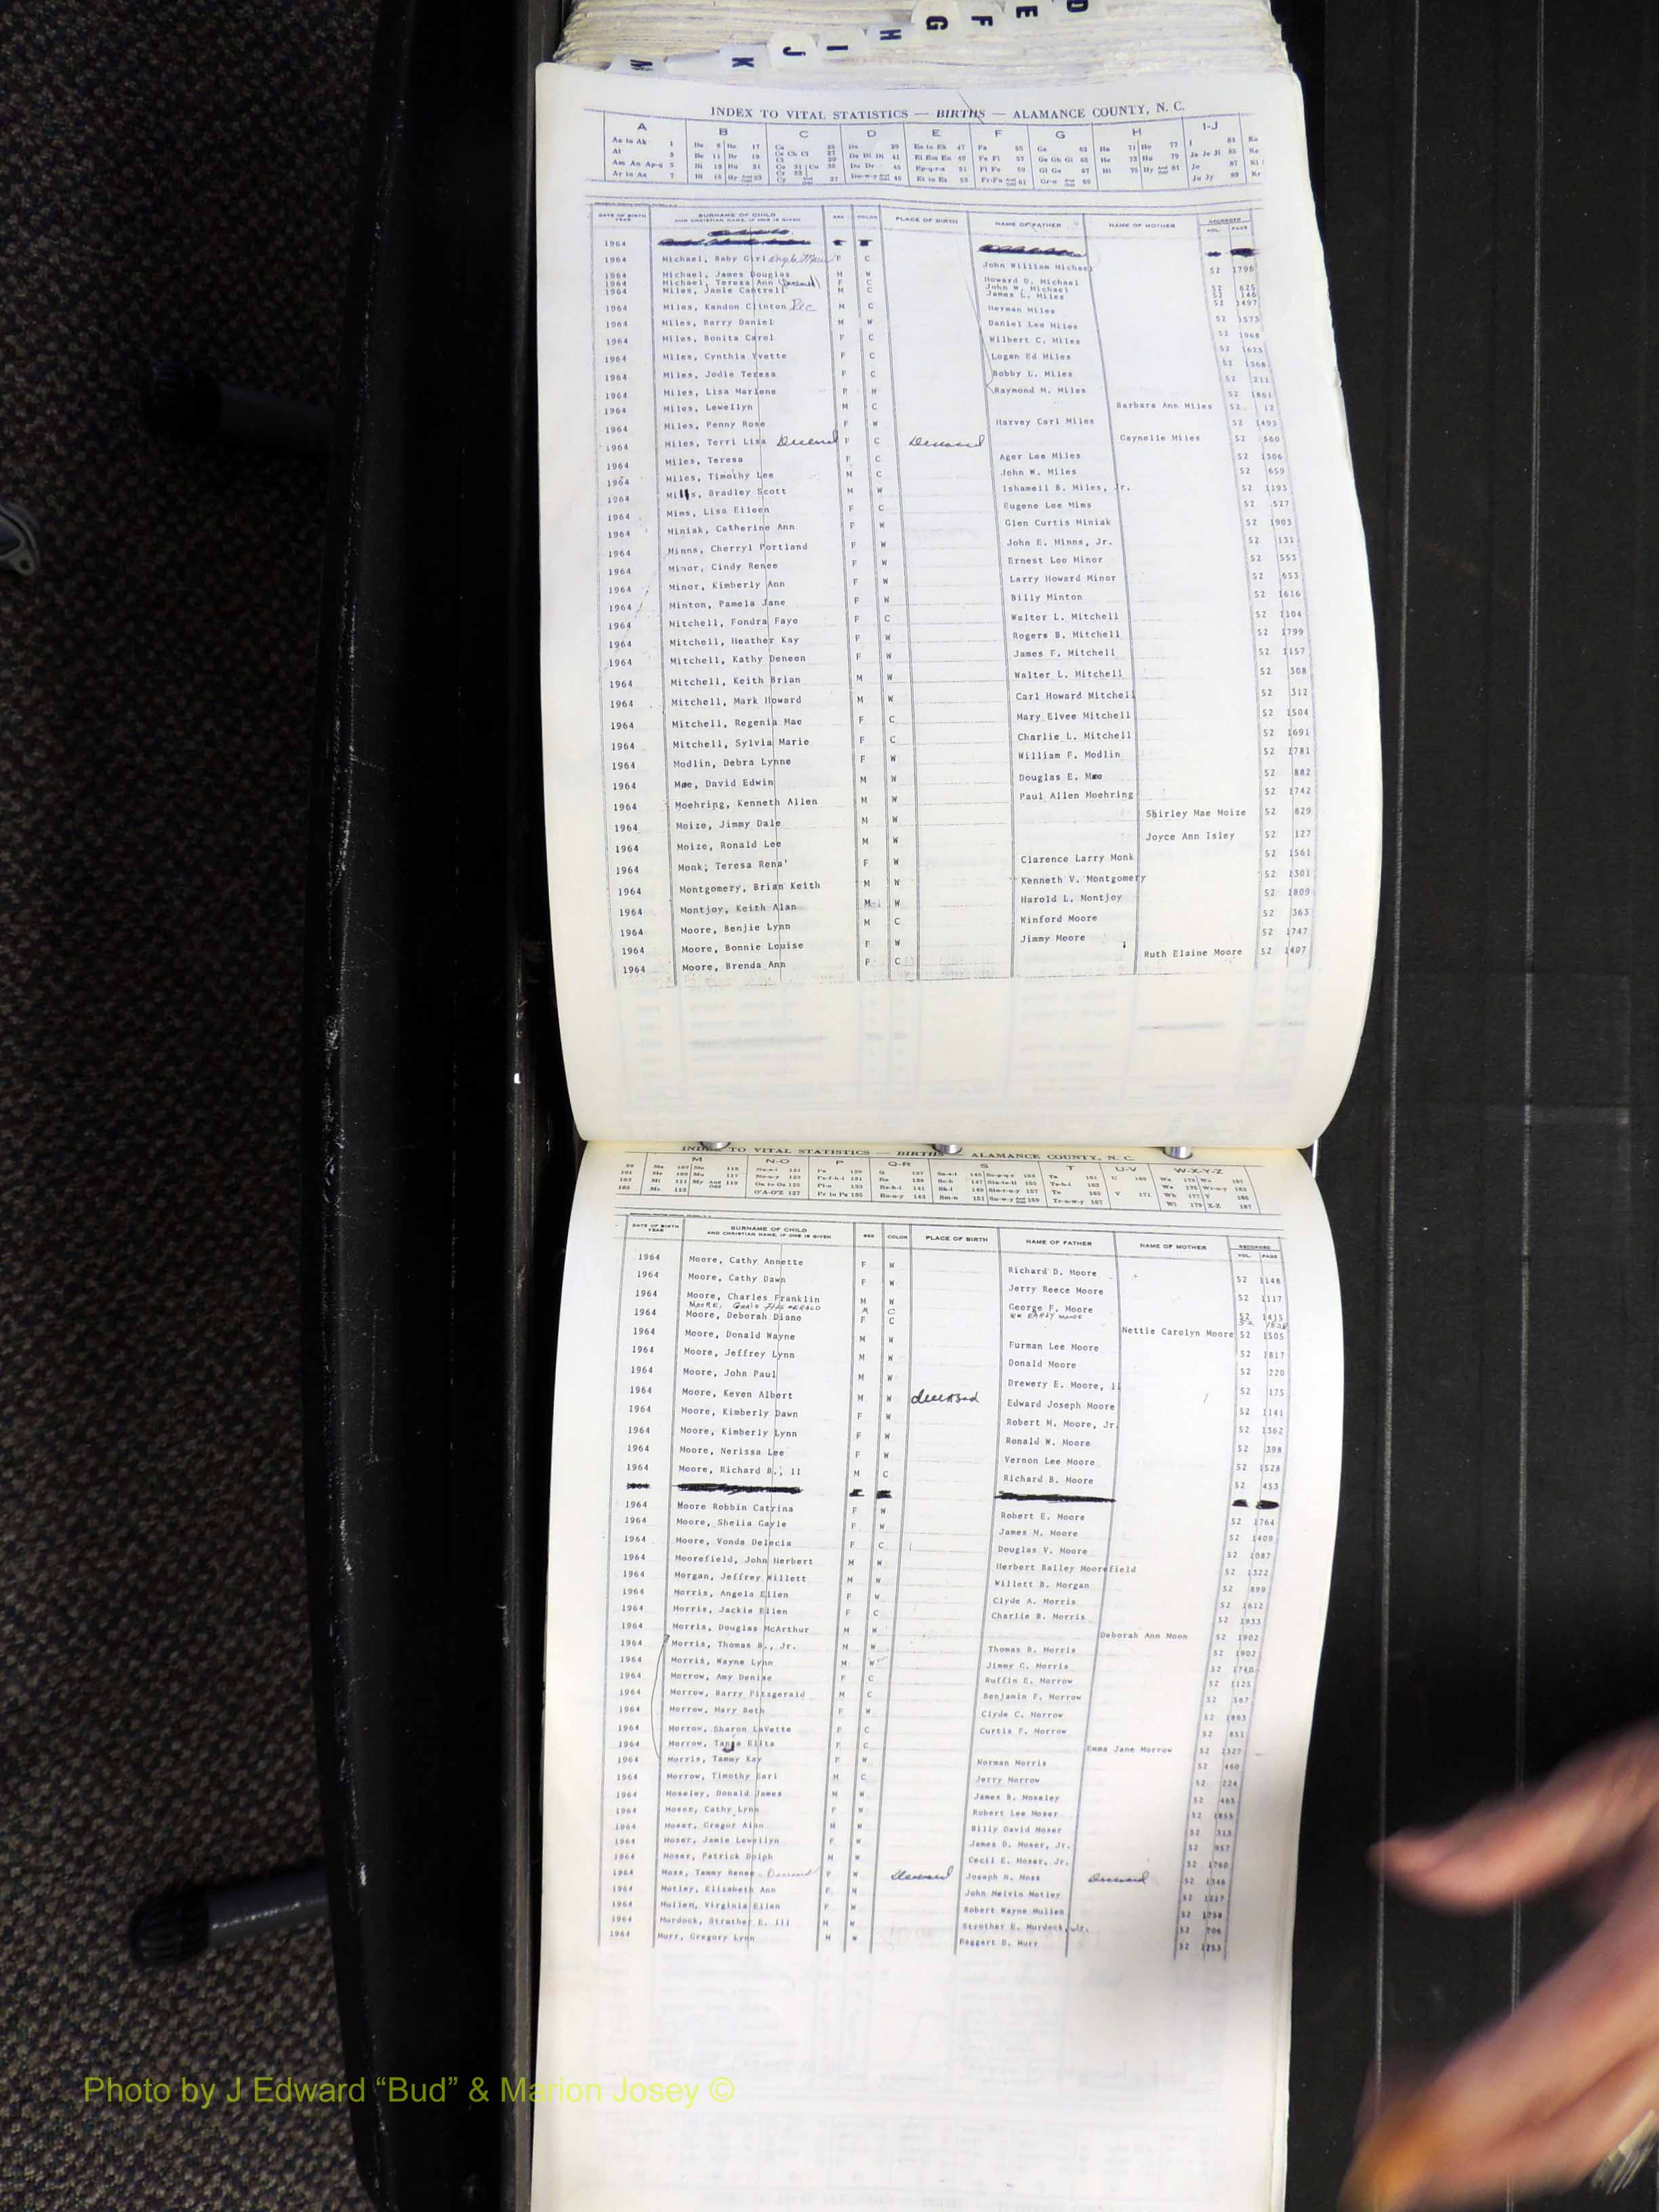 D
E
F
G
H
I
J
K
M
INDEX TO VITAL STATISTICS — BIRTHS — ALAMANCE COUNTY, N. C.
A B C D E F G H I-J
DATE OF BIRTH YEAR SURNAME OF CHILD AND CHRISTIAN NAME, IF ONE IS GIVEN SEX COLOR PLACE OF BIRTH NAME OF FATHER NAME OF MOTHER RECORDED VOL. PAGE
1964
1964 Michael, Baby Girl F C John William Michael 52 1796
1964 Michael, James Douglas M W Howard D. Michael 52 625
1964 Michael, Teresa Ann (Deceased) F C John W. Michael 52 146
1964 Miles, Janie Cantrell M C James L. Miles 52 1497
1964 Miles, Kandon Clinton Dec M C Herman Miles 52 1573
1964 Miles, Barry Daniel M W Daniel Lee Miles 52 1968
1964 Miles, Bonita Carol F C Wilbert C. Miles 52 1623
1964 Miles, Cynthia Yvette F C Logan Ed Miles 52 1568
1964 Miles, Jodie Teresa F C Bobby L. Miles 52 211
1964 Miles, Lisa Marlene F W Raymond M. Miles 52 1861
1964 Miles, Lewellyn M C Barbara Ann Miles 52 12
1964 Miles, Penny Rose F W Harvey Carl Miles 52 1493
1964 Miles, Terri Lisa Deceased F C Deceased Gaynelle Miles 52 560
1964 Miles, Teresa F C Ager Lee Miles 52 1306
1964 Miles, Timothy Lee M C John W. Miles 52 659
1964 Mills, Bradley Scott M W Ishamell B. Miles, Jr. 52 1193
1964 Mims, Lisa Eileen F C Eugene Lee Mims 52 527
1964 Miniak, Catherine Ann F W Glen Curtis Miniak 52 1903
1964 Minns, Cherryl Portland F W John E. Minns, Jr. 52 131
1964 Minor, Cindy Renee F W Ernest Leo Minor 52 553
1964 Minor, Kimberly Ann F W Larry Howard Minor 52 653
1964 Minton, Pamela Jane F W Billy Minton 52 1616
1964 Mitchell, Fondra Faye F C Walter L. Mitchell 52 1104
1964 Mitchell, Heather Kay F W Rogers B. Mitchell 52 1799
1964 Mitchell, Kathy Deneen F W James F. Mitchell 52 1157
1964 Mitchell, Keith Brian M W Walter L. Mitchell 52 308
1964 Mitchell, Mark Howard M W Carl Howard Mitchell 52 312
1964 Mitchell, Regenia Mae F C Mary Elvee Mitchell 52 1504
1964 Mitchell, Sylvia Marie F C Charlie L. Mitchell 52 1691
1964 Modlin, Debra Lynne F W William F. Modlin 52 1781
1964 Moe, David Edwin M W Douglas E. Moe 52 882
1964 Moehring, Kenneth Allen M W Paul Allen Moehring 52 1742
1964 Moize, Jimmy Dale M W Shirley Mae Moize 52 829
1964 Moize, Ronald Lee M W Joyce Ann Isley 52 127
1964 Monk, Teresa Rena' F W Clarence Larry Monk 52 1561
1964 Montgomery, Brian Keith M W Kenneth V. Montgomery 52 1301
1964 Montjoy, Keith Alan M W Harold L. Montjoy 52 1809
1964 Moore, Benjie Lynn M C Winford Moore 52 363
1964 Moore, Bonnie Louise F W Jimmy Moore 52 1747
1964 Moore, Brenda Ann F C Ruth Elaine Moore 52 1407
INDEX TO VITAL STATISTICS — BIRTHS — ALAMANCE COUNTY, N. C.
M N-O P Q-R S T U-V W-X-Y-Z
DATE OF BIRTH YEAR SURNAME OF CHILD AND CHRISTIAN NAME, IF ONE IS GIVEN SEX COLOR PLACE OF BIRTH NAME OF FATHER NAME OF MOTHER RECORDED VOL. PAGE
1964 Moore, Cathy Annette F W Richard D. Moore 52 1148
1964 Moore, Cathy Dawn F W Jerry Reece Moore 52 1117
1964 Moore, Charles Franklin M W George F. Moore 52 1415
MOORE, CRAIG FITZGERALD M C WM EARLY MOORE 52
1964 Moore, Deborah Diane F C Nettie Carolyn Moore 52 1505
1964 Moore, Donald Wayne M W Furman Lee Moore 52 1817
1964 Moore, Jeffrey Lynn M W Donald Moore 52 220
1964 Moore, John Paul M W Drewery E. Moore, 11 52 175
1964 Moore, Keven Albert M W deceased Edward Joseph Moore 52 1141
1964 Moore, Kimberly Dawn F W Robert M. Moore, Jr. 52 1362
1964 Moore, Kimberly Lynn F W Ronald W. Moore 52 398
1964 Moore, Nerissa Lee F W Vernon Lee Moore 52 1528
1964 Moore, Richard B., 11 M C Richard B. Moore 52 453
1964 Moore Robbin Catrina F W Robert E. Moore 52 1764
1964 Moore, Shelia Gayle F W James M. Moore 52 1409
1964 Moore, Vonda Delecia F C Douglas V. Moore 52 1087
1964 Moorefield, John Herbert M W Herbert Bailey Moorefield 52 1322
1964 Morgan, Jeffrey Willett M W Willett B. Morgan 52 899
1964 Morris, Angela Ellen F W Clyde A. Morris 52 1612
1964 Morris, Jackie Ellen F C Charlie B. Morris 52 1933
1964 Morris, Douglas McArthur M W Deborah Ann Moon 52 1902
1964 Morris, Thomas B., Jr. M W Thomas B. Morris 52 1902
1964 Morris, Wayne Lynn M W Jimmy C. Morris 52 1740
1964 Morrow, Amy Denise F C Ruffin E. Morrow 52 1125
1964 Morrow, Barry Fitzgerald M C Benjamin F. Morrow 52 567
1964 Morrow, Mary Beth F W Clyde C. Morrow 52 1893
1964 Morrow, Sharon LaVette F C Curtis F. Morrow 52 851
1964 Morrow, Tanja Elita F C Emma Jane Morrow 52 1327
1964 Morris, Tammy Kay F W Norman Morris 52 460
1964 Morrow, Timothy Earl M C Jerry Morrow 52 224
1964 Moseley, Donald James M W James B. Moseley 52 465
1964 Moser, Cathy Lynn F W Robert Lee Moser 52 1855
1964 Moser, Gregor Alan M W Billy David Moser 52 313
1964 Moser, Jamie Lewellyn F W James D. Moser, Jr. 52 957
1964 Moser, Patrick Dolph M W Cecil E. Moser, Jr. 52 1760
1964 Moss, Tammy Renee Deceased F W Deceased Joseph N. Moss Deceased 52 1346
1964 Motley, Elizabeth Ann F W John Melvin Motley 52
1964 Mullen, Virginia Ellen F W Robert Wayne Mullen 52 1758
1964 Murdock, Strother E. III M W Strother E. Murdock, Jr. 52 706
1964 Murr, Gregory Lynn M W Haggert D. Murr 52 1253
Photo by J Edward “Bud” & Marion Josey ©